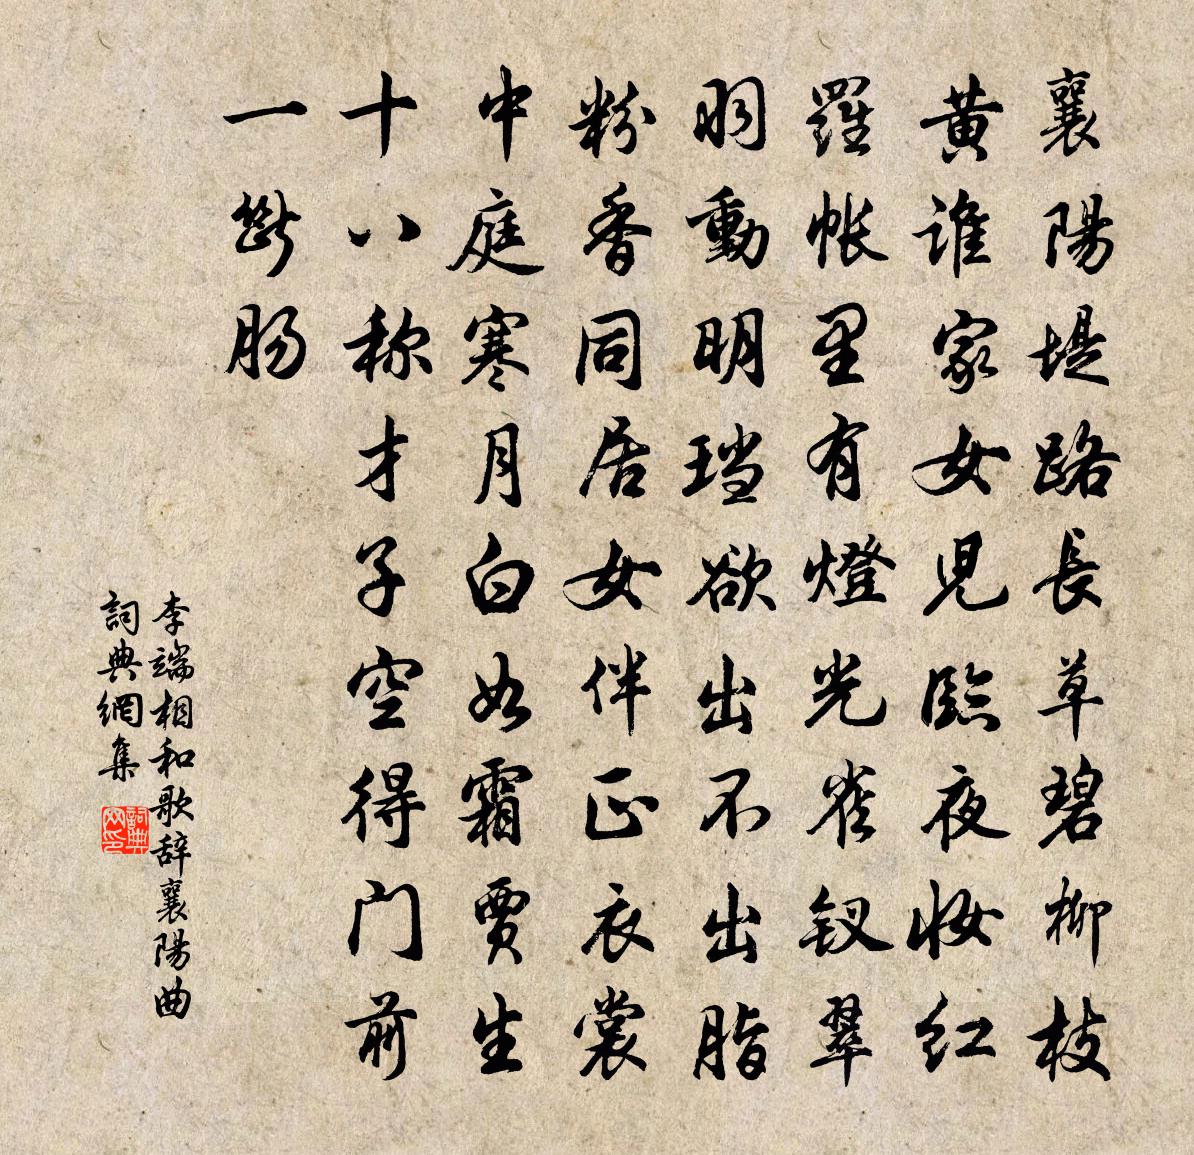 襄陽堤路長草碧柳枝
黄誰家女兒臨夜妝紅
羅帳里有燈光雀釵翠
羽動明珰欲出不出脂
粉香同居女伴正衣裳
中庭寒月白如霜賈生
十八称才子空得门前
一斷肠
李端相和歌辞襄陽曲
詞典網集
詞典
网印